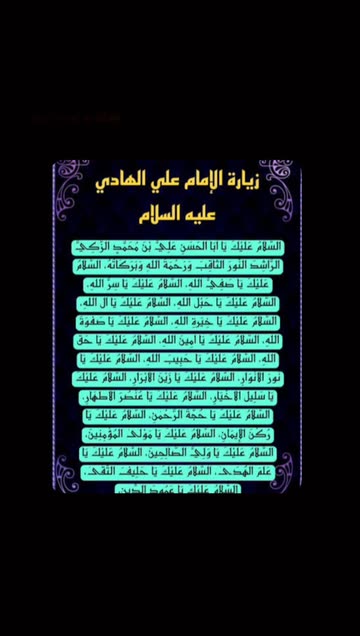 زيارة الإمام علي الهادي
عليه السلام
السَّلامُ عَلَيْكَ يَا أَبَا الحَسَنِ عَلِيَّ بْنَ مُحَمَّدٍ الزَّكِيَّ
الرَّاشِدَ النُّورَ الثَّاقِبَ وَرَحْمَةُ اللهِ وَبَرَكَاتُهُ، السَّلَامُ
عَلَيْكَ يَا صَفِيَّ اللهِ، السَّلامُ عَلَيْكَ يَا سِرَّ اللهِ،
السَّلامُ عَلَيْكَ يَا حَبْلَ اللهِ، السَّلامُ عَلَيْكَ يَا آلَ اللهِ،
السَّلامُ عَلَيْكَ يَا خِيَرَةَ اللهِ، السَّلامُ عَلَيْكَ يَا صَفْوَةَ
اللهِ، السَّلامُ عَلَيْكَ يَا أَمِينَ اللهِ، السَّلامُ عَلَيْكَ يَا حَقَّ
اللهِ، السَّلامُ عَلَيْكَ يَا حَبِيبَ اللهِ، السَّلامُ عَلَيْكَ يَا
نُورَ الأَنْوَارِ، السَّلامُ عَلَيْكَ يَا زَيْنَ الأَبْرَارِ، السَّلامُ عَلَيْكَ
يَا سَلِيلَ الأَخْيَارِ، السَّلامُ عَلَيْكَ يَا عُنْصُرَ الأَطْهَارِ،
السَّلامُ عَلَيْكَ يَا حُجَّةَ الرَّحْمنِ، السَّلامُ عَلَيْكَ يَا
رُكْنَ الإِيمَانِ، السَّلامُ عَلَيْكَ يَا مَوْلَى المُؤْمِنِينَ،
السَّلامُ عَلَيْكَ يَا وَلِيَّ الصَّالِحِينَ، السَّلامُ عَلَيْكَ يَا
عَلَمَ الهُدَى، السَّلامُ عَلَيْكَ يَا حَلِيفَ التُّقَى،
السَّلامُ عَلَيْكَ يَا عَمُودَ الدِّينِ،